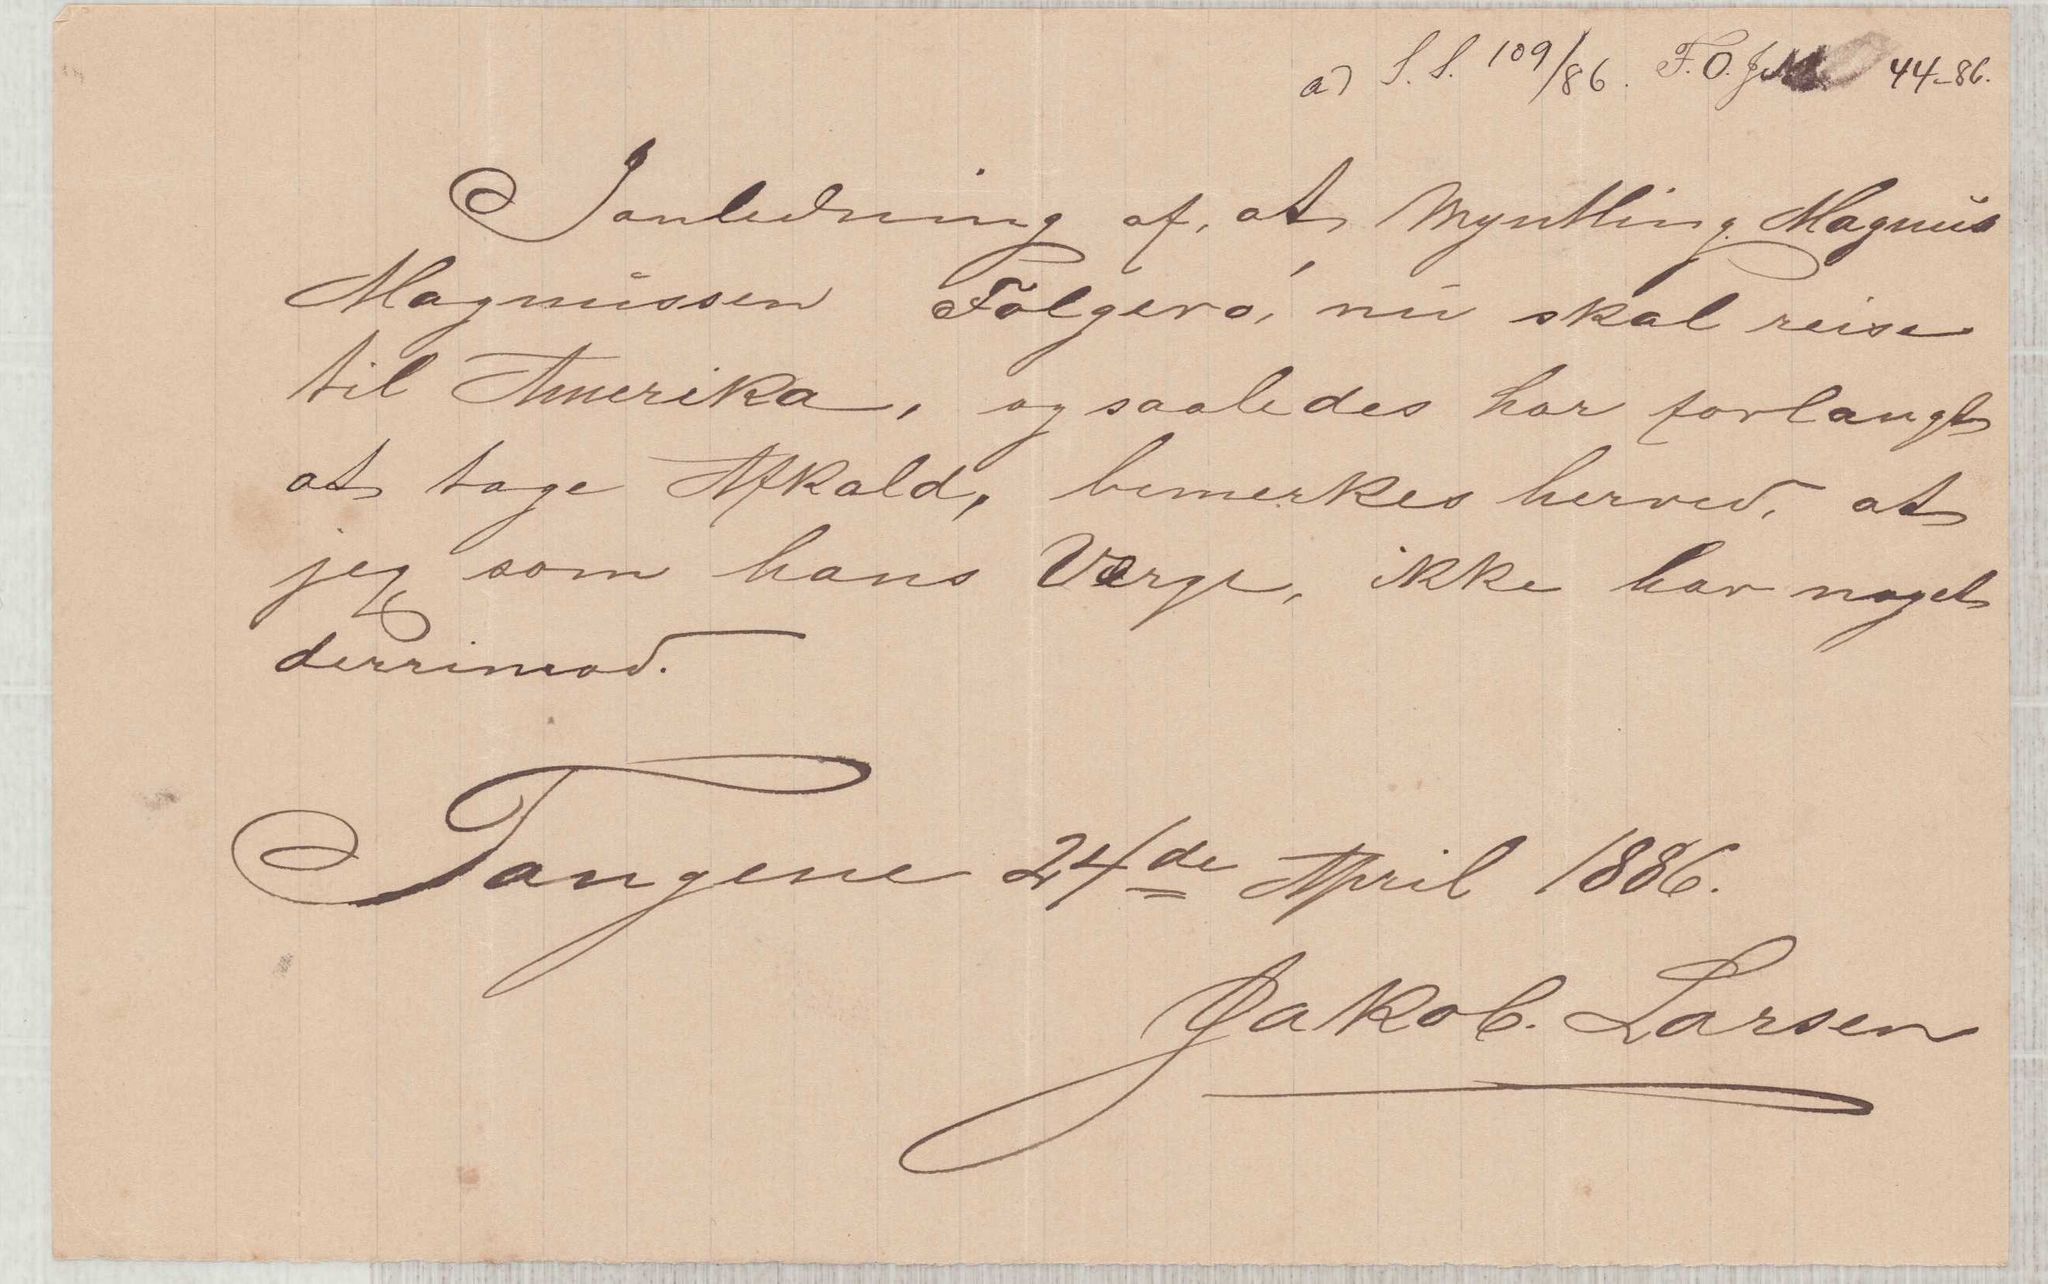 ad S. S. 109/86. F. O. 44-86.
I anledning af, at Myntling Magnus
Magnussen Følgerø, nu skal reise
til Amerika, og saaledes har forlangt
at tage Afkald, bemerkes herved, at
jeg som hans Værge, ikke har noget
derrimod.
Tangene 24/de April 1886.
Jakob. Larsen